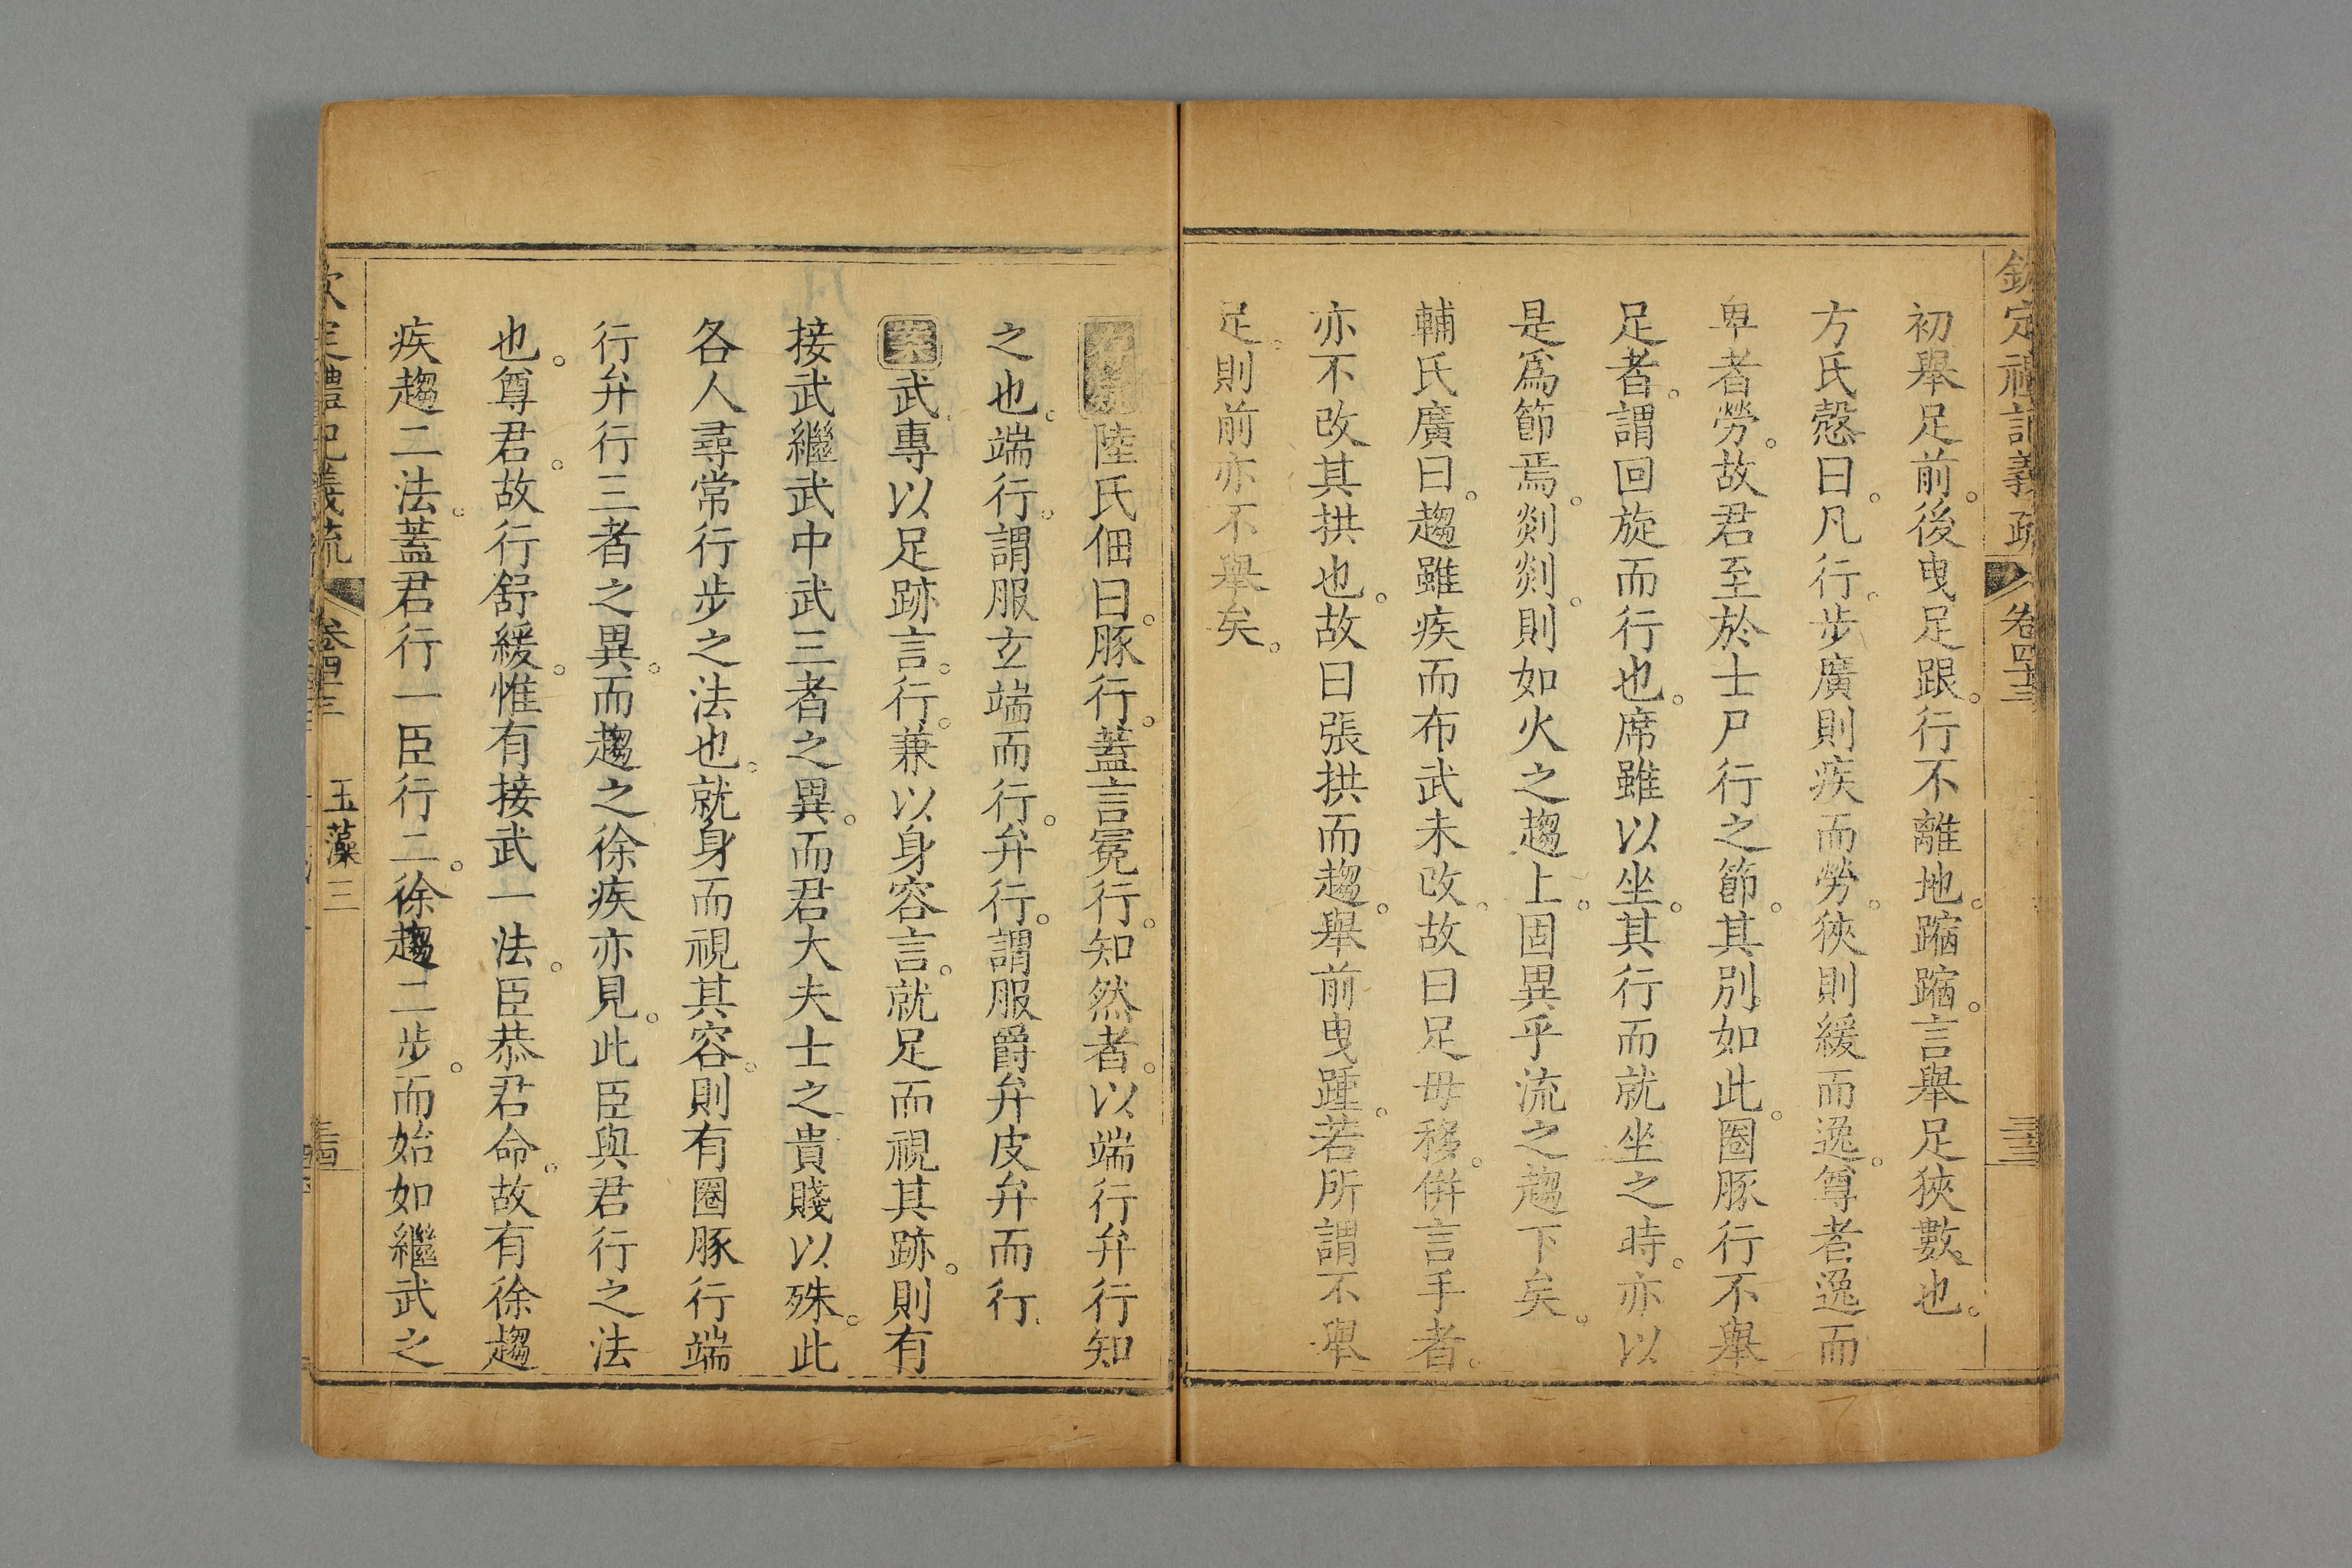 欽定禮記義疏 卷四十三 三十三
初舉足前。後曳足跟。行不離地。蹜蹜。言舉足狹數也。
方氏慤曰。凡行。步廣則疾而勞。狹則緩而逸。尊者逸而
卑者勞。故君至於士尸行之節。其別如此。圈豚行不舉
足者。謂回旋而行也。席雖以坐。其行而就坐之時。亦以
是爲節焉。剡剡。則如火之趨上。固異乎流之趨下矣。
輔氏廣曰。趨雖疾而布武未改。故曰足毋移。併言手者。
亦不改其拱也。故曰張拱而趨。舉前曳踵。若所謂不舉
足。則前亦不舉矣。
陸氏佃曰。豚行。蓋言冕行。知然者。以端行弁行知
之也。端行。謂服玄端而行。弁行。謂服爵弁皮弁而行
案武專以足跡言。行。兼以身容言。就足而視其跡。則有
接武繼武中武三者之異。而君大夫士之貴賤以殊。此
各人尋常行步之法也。就身而視其容。則有圈豚行端
行弁行三者之異。而趨之徐疾亦見。此臣與君行之法
也。尊君。故行舒緩。惟有接武一法。臣恭君命。故有徐趨
疾趨二法。蓋君行一臣行二。徐趨二步。而始如繼武之
欽定禮記義疏 卷四十三 玉藻三 三十四